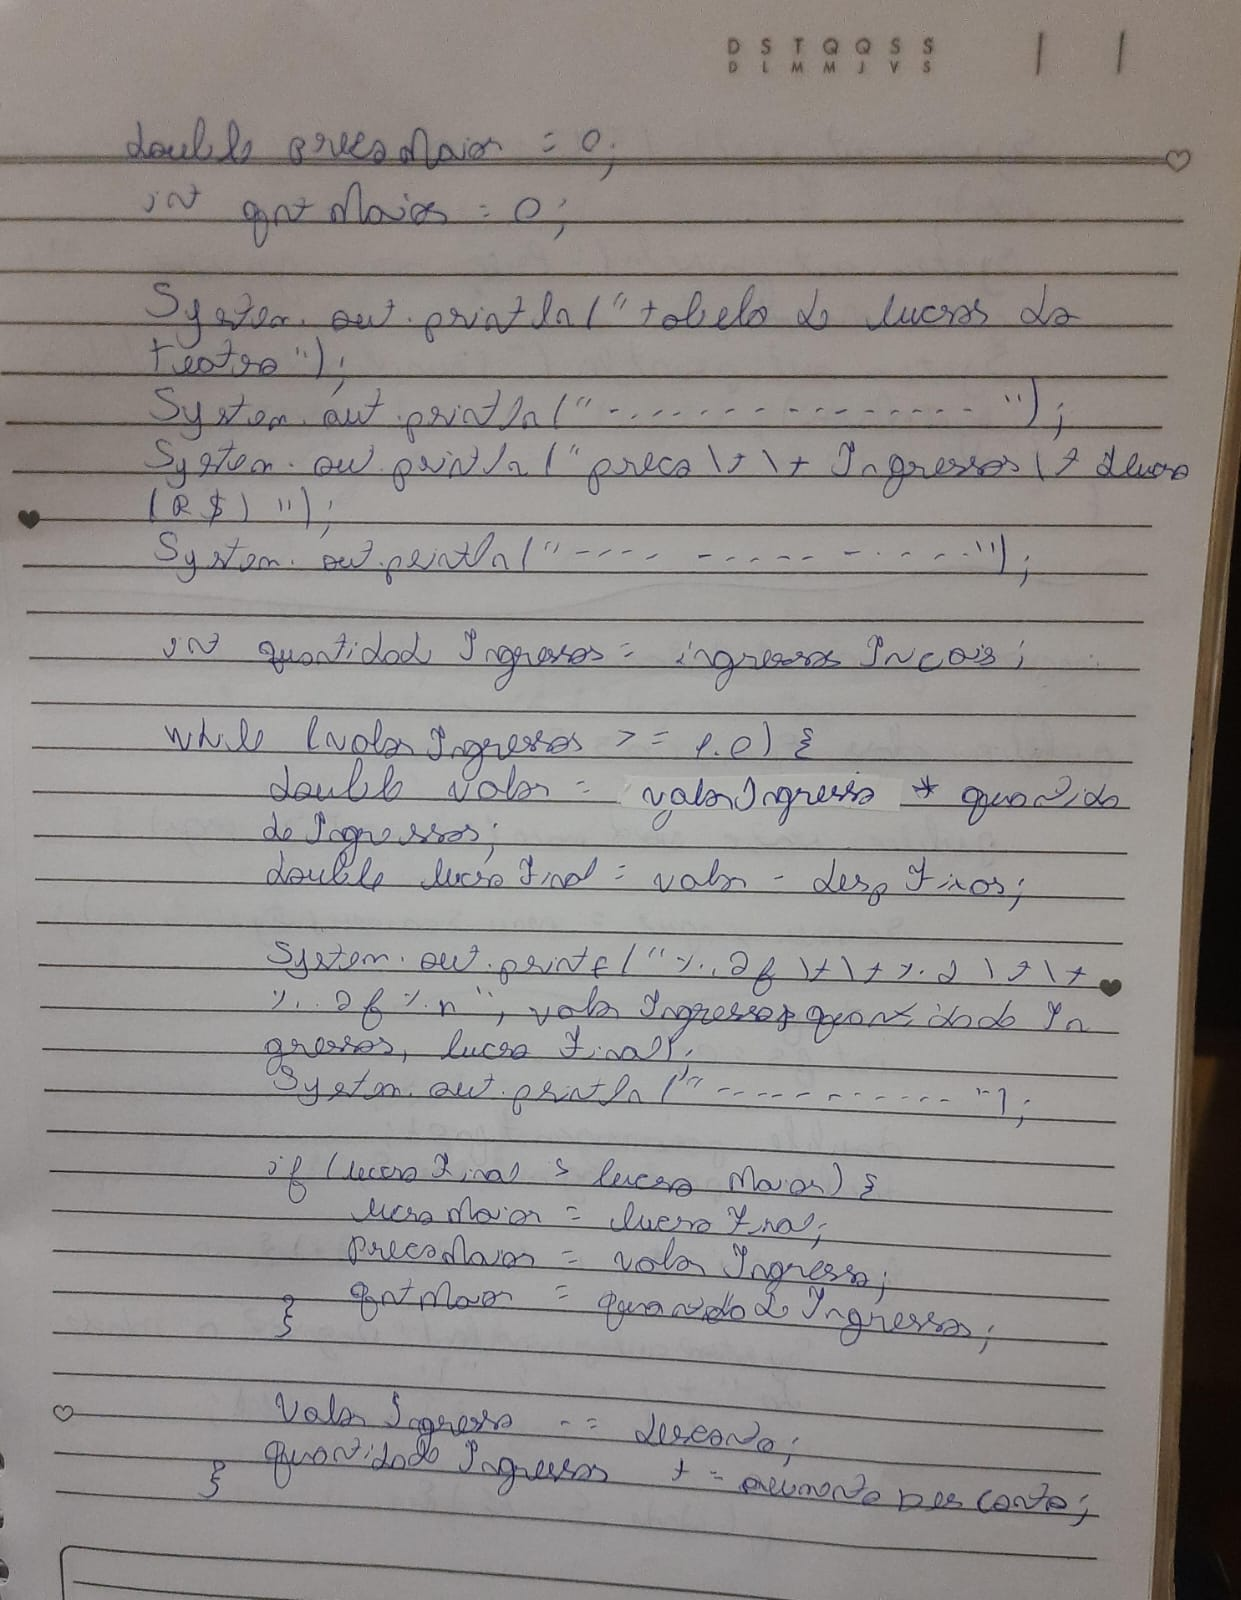 D S T Q Q S S
D L M M J V S
double precoMaior = 0;
int qntMaior = 0;
System.out.println("tabela de lucros do
teatro");
System.out.println("----------------");
System.out.println("preco\t\t Ingressos\t Lucro
(R$)");
System.out.println("---- ----- - - ----");
int quantidadeIngressos = ingressosInicais;
while (valorIngressos >= 1.0) {
double valor = valorIngresso * quantida
deIngressos;
double lucroFinal = valor - despFixas;
System.out.printf("%.2f\t\t%d\t\t
%.2f%n", valorIngresso, quantidadeIn
gressos, lucroFinal);
System.out.println("-----------");
if (lucroFinal > lucroMaior) {
lucroMaior = lucroFinal;
precoMaior = valorIngresso;
qntMaior = quantidadeIngressos;
}
valorIngresso -= desconto;
quantidadeIngressos += aumentoDesconto;
}